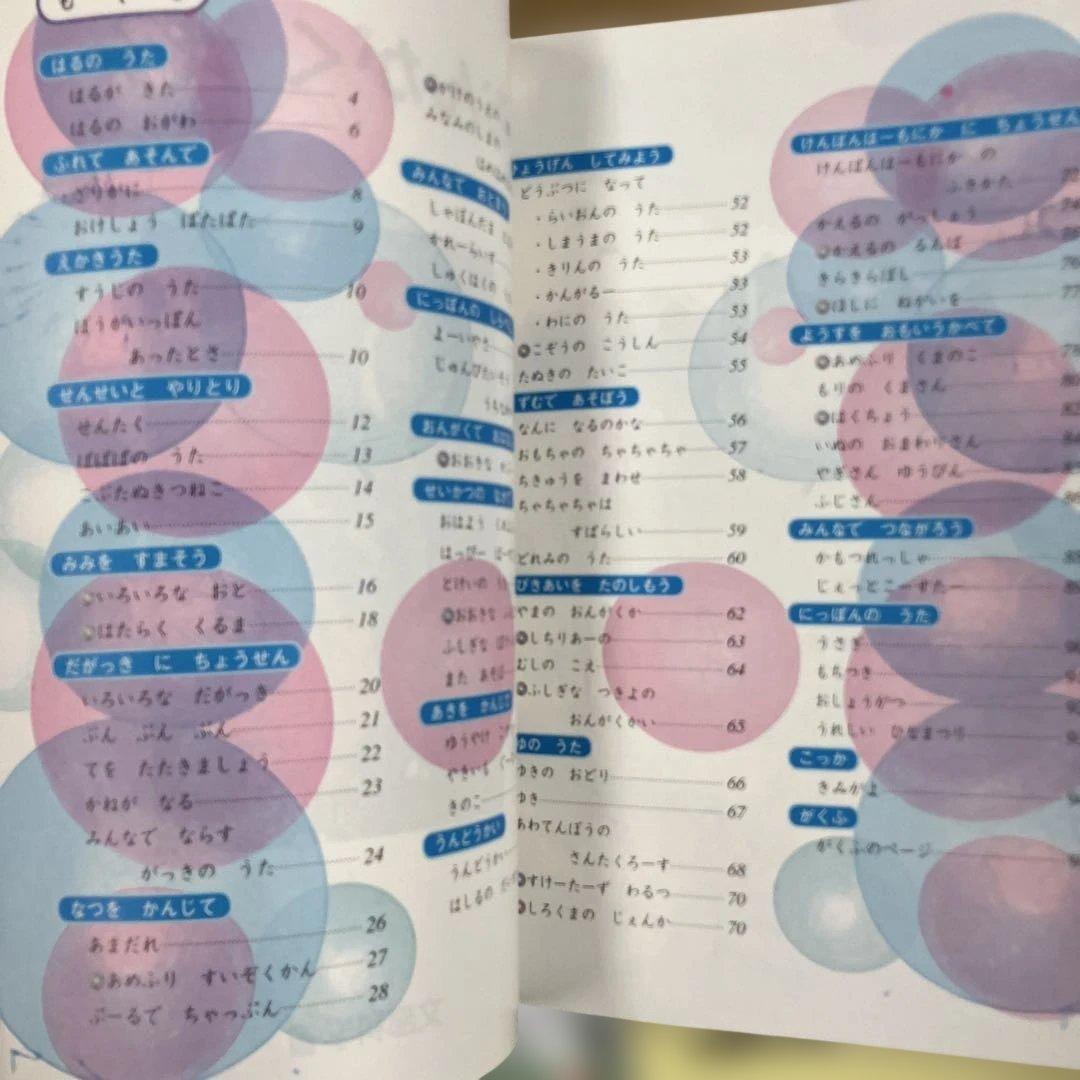 はるの うた
はるが きた 4
はるの おがわ 6
ふれて あそんで
ざりがに 8
おけしょう ぱたぱた 9
えかきうた
すうじの うた 10
ぼうがいっぽん
あったとさ 10
せんせいと やりとり
せんたく 12
ぱぱぱの うた 13
こぶたぬきつねこ 14
あいあい 15
みみを すまそう
いろいろな おと 16
はたらく くるま 18
だがっき に ちょうせん
いろいろな だがっき 20
ぶん ぶん ぶん 21
てを たたきましょう 22
かねが なる 23
みんなで ならす
がっきの うた 24
なつを かんじて
あまだれ 26
あめふり すいぞくかん 27
ぷーるで ちゃっぷん 28
みんなで
しゃぼんだま
かれーらいす
しゅくはくの
にっぽんの
じゅんびたいそう
おんがくで
おおきな
せいかつの
おはよう
とけいの
おおきな
ふしぎな
また あそぼ
あきを かんじて
ゆうやけ
やきいも
きのこ
うんどうかい
うんどうかい
はしるの
ひょうげん してみよう
どうぶつに なって
・らいおんの うた 52
・しまうまの うた 52
・きりんの うた 53
・かんがるー 53
・わにの うた 53
こぞうの こうしん 54
たぬきの たいこ 55
ずむで あそぼう
なんに なるのかな 56
おもちゃの ちゃちゃちゃ 57
ちきゅうを まわせ 58
ちゃちゃちゃは
すばらしい 59
どれみの うた 60
びきあいを たのしもう
やまの おんがくか 62
しちりあーの 63
むしの こえ 64
ふしぎな つきよの
おんがくかい 65
ゆの うた
ゆきの おどり 66
ゆき 67
あわてんぼうの
さんたくろーす 68
すけーたーず わるつ 70
しろくまの じぇんか 70
けんばんはーもにか に ちょうせん
けんばんはーもにか の
ふきかた
かえるの がっしょう
かえるの るんば
きらきらぼし 76
ほしに ねがいを 77
ようすを おもいうかべて
あめふり くまのこ 78
もりの くまさん
はくちょう
いぬの おまわりさん
やぎさん ゆうびん
ふじさん
みんなで つながろう
かもつれっしゃ
じぇっとこーすたー
にっぽんの うた
うさぎ
もちつき
おしょうがつ
うれしい ひなまつり
こっか
きみがよ
がくふ
がくふのページ